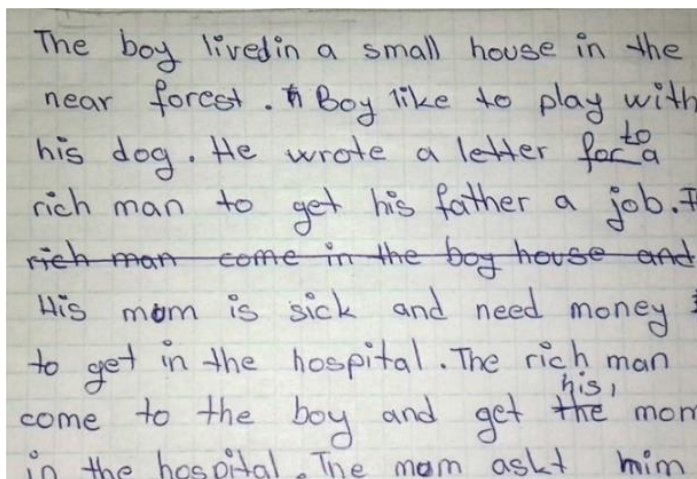 The boy livedin a small house in the
near forest. Boy like to play with
his dog. He wrote a letter for to a
rich man to get his father a job.
rich man come in the boy house and
His mom is sick and need money
to get in the hospital. The rich man
come to the boy and get the his, mom
in the hospital. The mom askt him